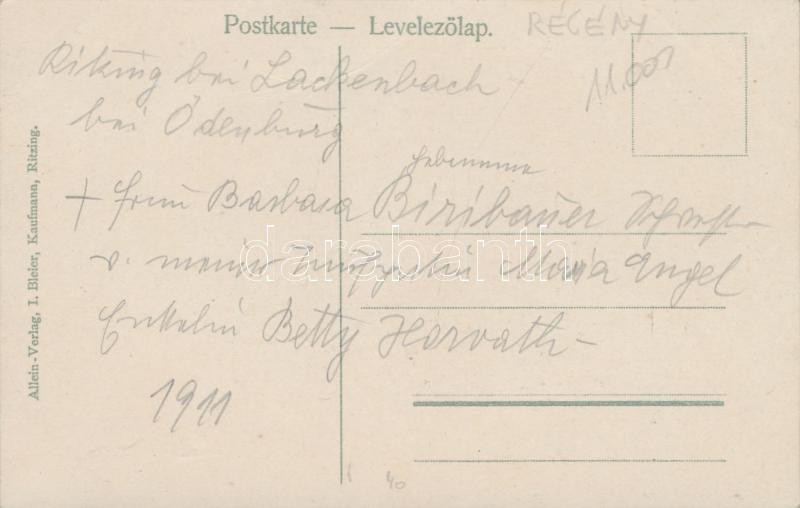 Postkarte — Levelezőlap.
RÉGÉNY
11.000
Riking bei Lackenbach
bei Ödenburg
Hebamme
+ Frau Barbara Biribauer Schwester
v. meiner Maria Engel
Enkelin Betty Horvath –
1911
40
Allein-Verlag, I. Bleier, Kaufmann, Ritzing.
darabanth